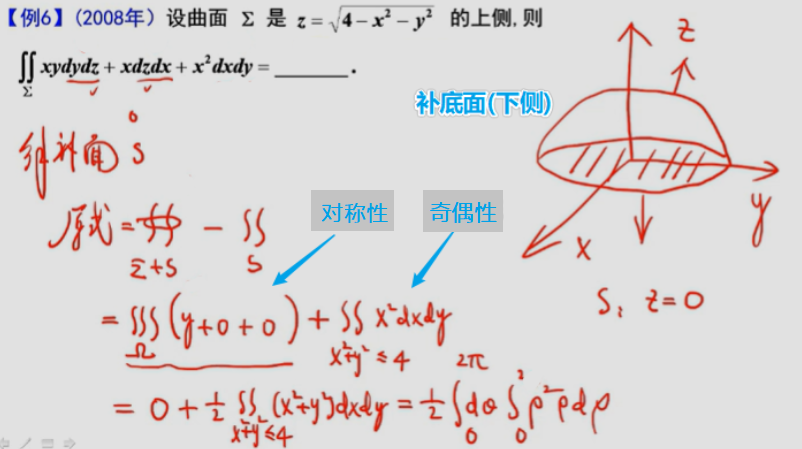 【例6】(2008年) 设曲面 Σ 是 z = √(4 − x² − y²) 的上侧, 则
∬_Σ xydydz + xdzdx + x²dxdy = ______.
补底面(下侧)
z
补面 S
原式 = ∯_{Σ+S} − ∬_S
对称性 奇偶性
y
x
S: z = 0
= ∭_Ω (y+0+0) + ∬_{x²+y²≤4} x²dxdy
= 0 + 1/2 ∬_{x²+y²≤4} (x²+y²)dxdy = 1/2 ∫_0^{2π} dθ ∫_0^2 ρ²ρdρ